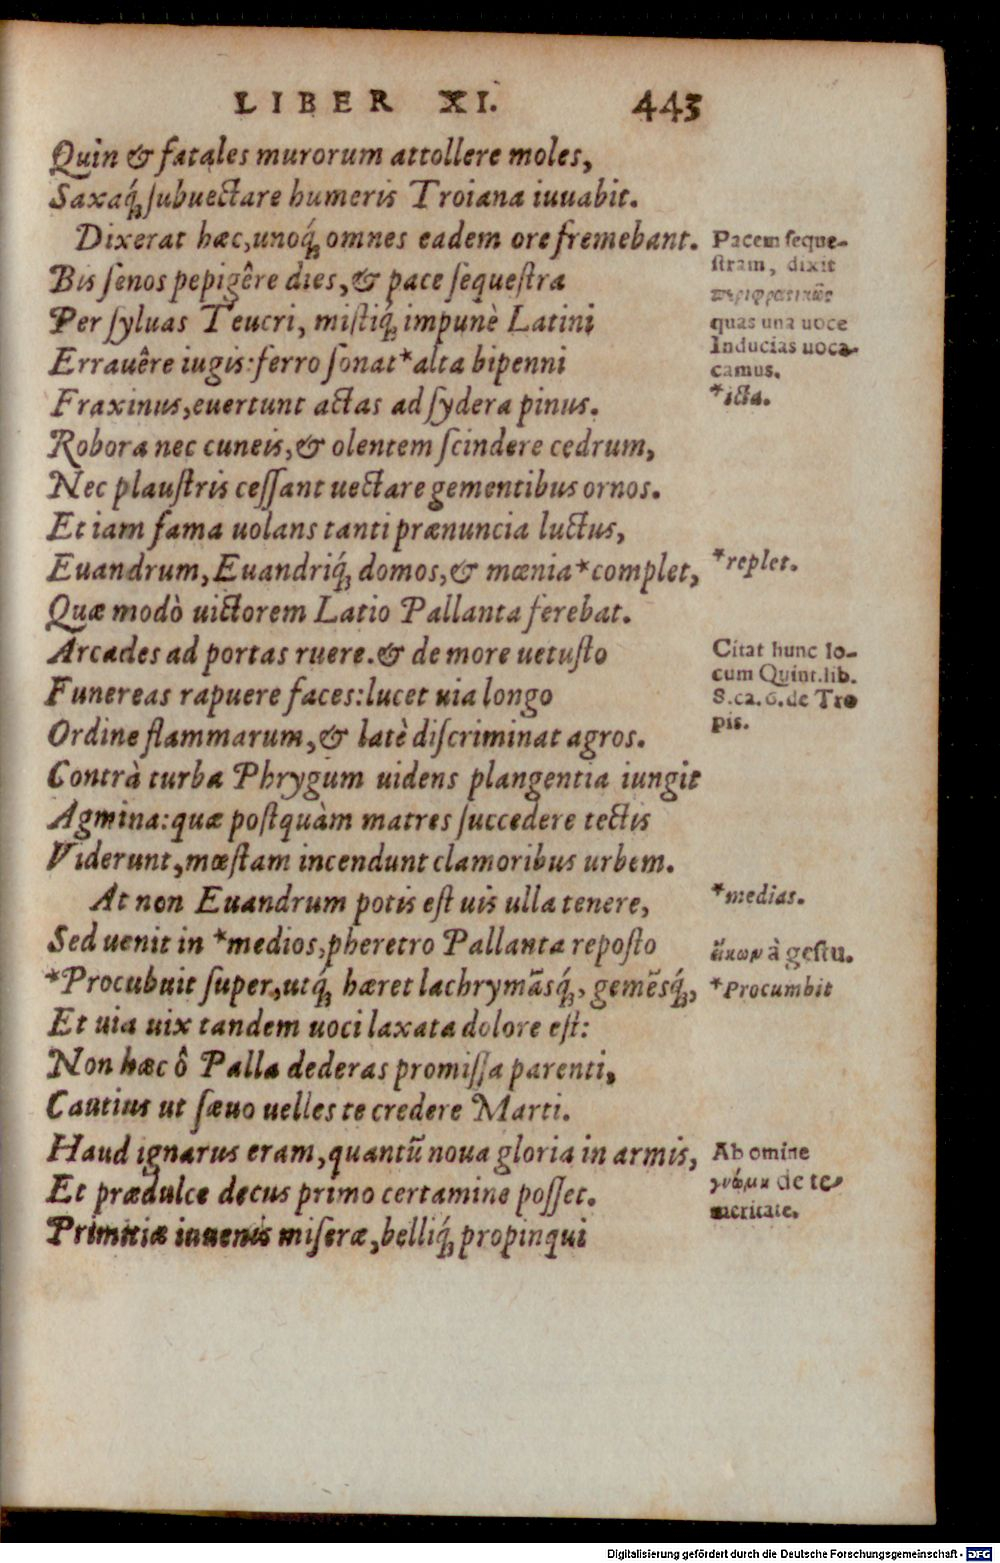 LIBER XI. 443
Quin & fatales murorum attollere moles,
Saxaq́; ſubuectare humeris Troiana iuuabit.
Dixerat hæc, unoq́; omnes eadem ore fremebant.
Bis ſenos pepigêre dies, & pace ſequeſtra
Per ſyluas Teucri, miſtiq́; impunè Latini
Errauêre iugis: ferro ſonat *alta bipenni
Fraxinus, euertunt actas ad ſydera pinus.
Robora nec cuneis, & olentem ſcindere cedrum,
Nec plauſtris ceſſant uectare gementibus ornos.
Et iam fama uolans tanti prænuncia luctus,
Euandrum, Euandriq́; domos, & mœnia *complet,
Quæ modò uictorem Latio Pallanta ferebat.
Arcades ad portas ruere. & de more uetuſto
Funereas rapuere faces: lucet uia longo
Ordine flammarum, & latè diſcriminat agros.
Contrà turba Phrygum uidens plangentia iungit
Agmina: quæ poſtquàm matres ſuccedere tectis
Viderunt, mœſtam incendunt clamoribus urbem.
At non Euandrum potis eſt uis ulla tenere,
Sed uenit in *medios, pheretro Pallanta repoſto
*Procubuit ſuper, utq́; hæret lachrymãsq́;, gemẽsq́;,
Et uia uix tandem uoci laxata dolore eſt:
Non hæc ô Palla dederas promiſſa parenti,
Cautius ut ſæuo uelles te credere Marti.
Haud ignarus eram, quantũ noua gloria in armis,
Et prædulce decus primo certamine poſſet.
Primitiæ iuuenis miſeræ, belliq́; propinqui
Pacem ſeque-
ſtram, dixit
περιφραστικῶς
quas una uoce
Inducias uoca-
camus.
*icta.
*replet.
Citat hunc lo-
cum Quint. lib.
8. ca. 6. de Tro
pis.
*medias.
à geſtu.
*Procumbit
Ab omine
γνώμη de te-
meritate.
Digitalisierung gefördert durch die Deutsche Forschungsgemeinschaft - DFG